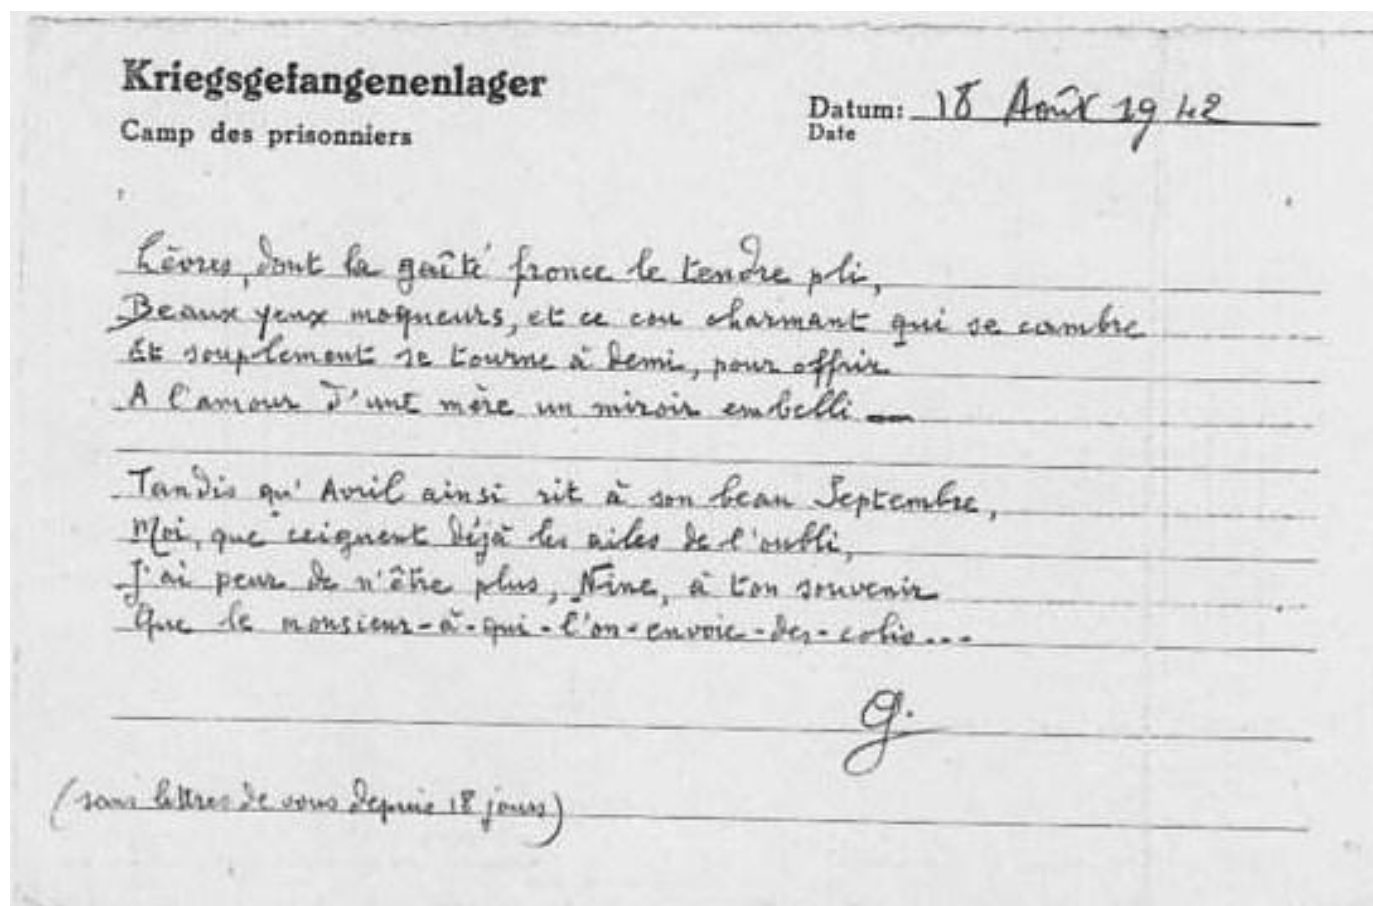 Kriegsgefangenenlager
Camp des prisonniers
Datum: 18 Août 1942
Date
Lèvres, dont la gaîté fronce le tendre pli,
Beaux yeux moqueurs, et ce cou charmant qui se cambre
Et souplement se tourne à demi, pour offrir
A l'amour d'une mère un miroir embelli —
Tandis qu'Avril ainsi rit à son beau Septembre,
Moi, que ceignent déjà les ailes de l'oubli,
J'ai peur de n'être plus, Nine, à ton souvenir
Que le monsieur-à-qui-l'on-envoie-des-colis...
G.
(sans lettres de vous depuis 18 jours)